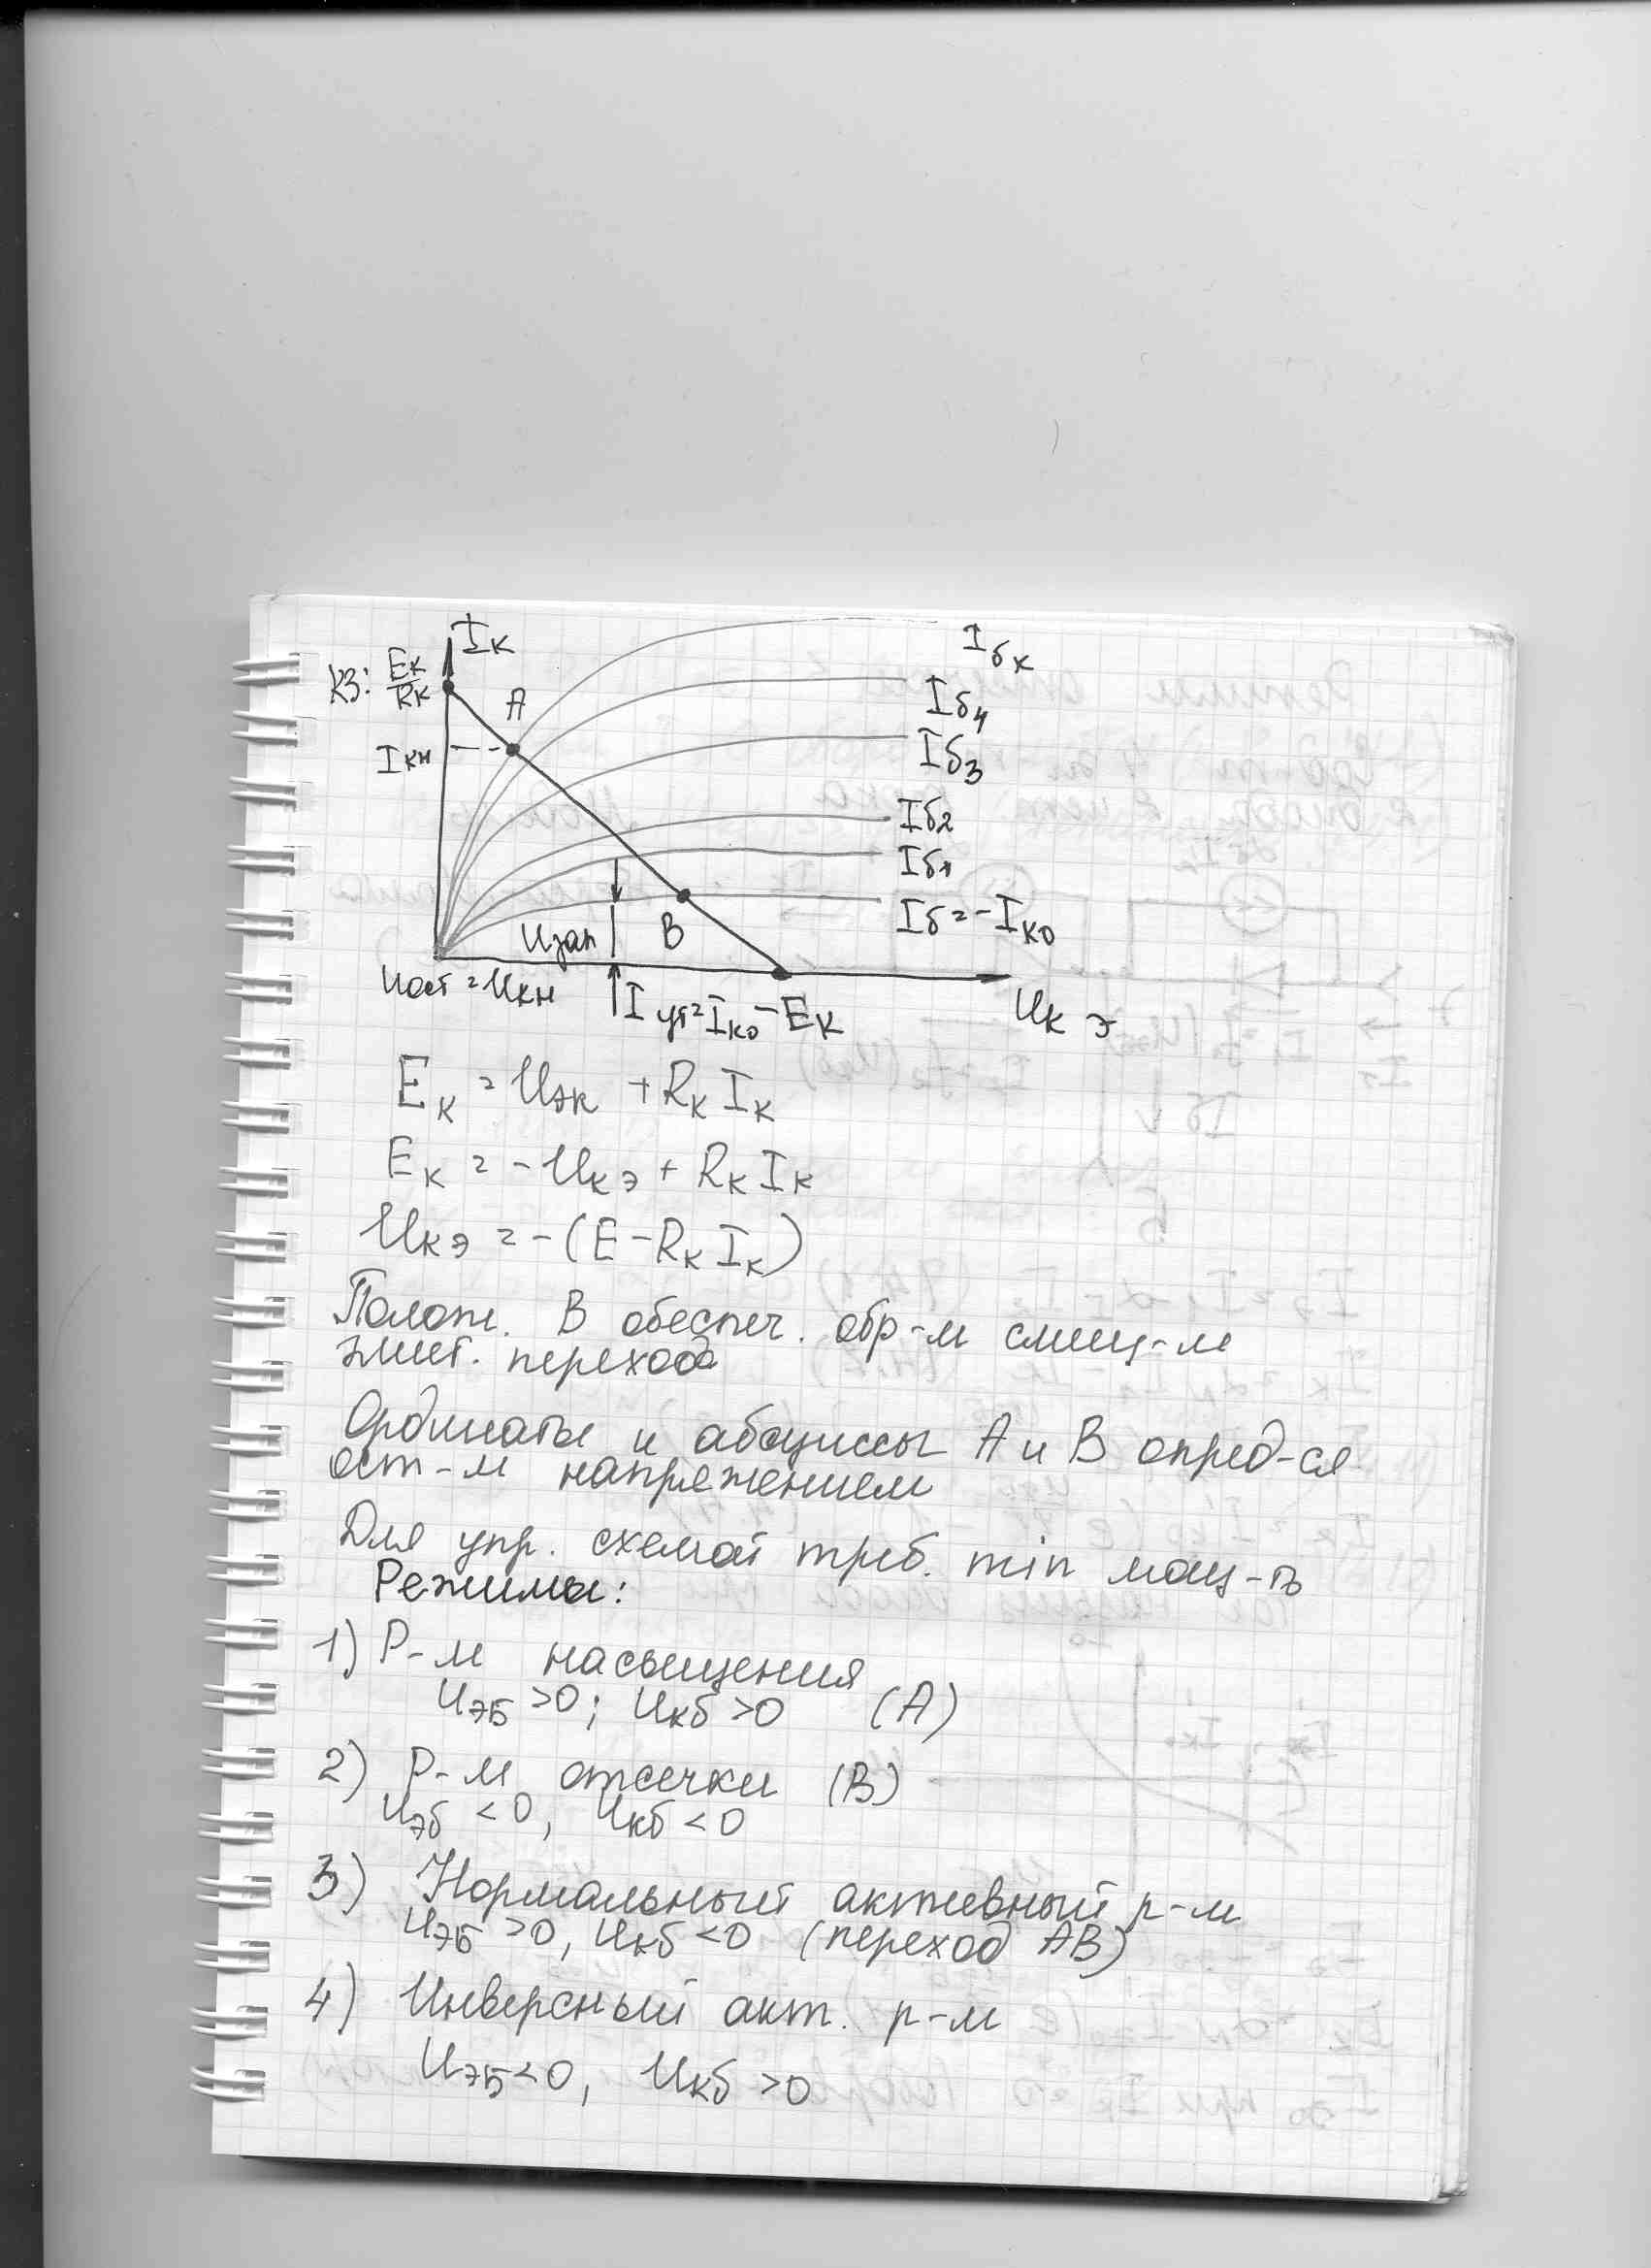 Iк
КЗ: Eк/Rк
A
Iкн
Iбк
Iб4
Iб3
Iб2
Iб1
Iб=-Iко
Uзап
B
Uост=Uкн
Iут=Iко
-Eк
Uкэ
Eк = Uэк + RкIк
Eк = -Uкэ + RкIк
Uкэ = -(E-RкIк)
Полож. В обеспеч. обр-м смещ-м
эмит. перехода
Ординаты и абсциссы А и В опред-ся
ост-м напряжением
Для упр. схемой треб. min мощ-ть
Режимы:
1) Р-м насыщения
UЭБ >0; Uкб >0 (А)
2) Р-м отсечки (В)
Uэб <0, Uкб <0
3) Нормальный активный р-м
UЭБ >0, Uкб <0 (переход АВ)
4) Инверсный акт. р-м
UЭБ <0, Uкб >0